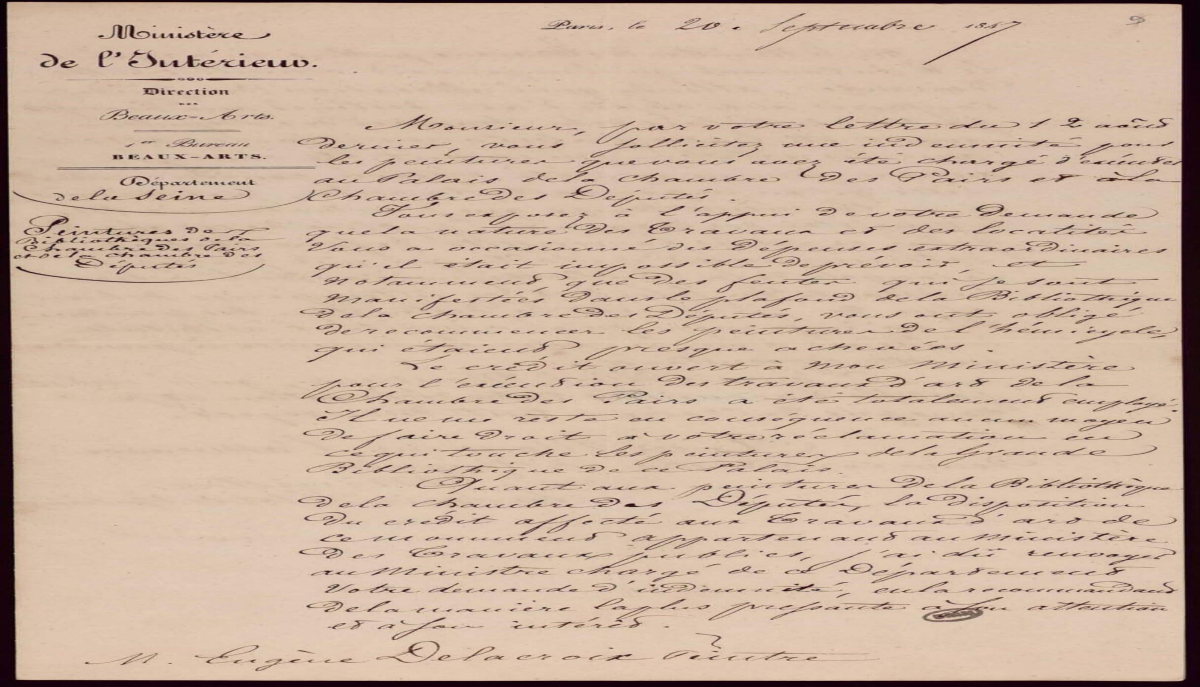 Ministère
de l'Intérieur.
Direction
des
Beaux-Arts.
1er Bureau
BEAUX-ARTS.
Département
de la Seine
Peintures des
Bibliothèques de la
Chambre des Pairs
et de la Chambre des
Députés
Paris, le 20. Septembre 1847
Monsieur, par votre lettre du 12 août
dernier, vous sollicitez une indemnité pour
les peintures que vous avez été chargé d'exécuter
au Palais de la Chambre des Pairs et à la
Chambre des Députés.
Vous exposez à l'appui de votre demande
que la nature des travaux et des localités
vous a occasionné des dépenses extraordinaires
qu'il était impossible de prévoir, et
notamment que des fentes qui se sont
manifestées dans le plafond de la Bibliothèque
de la Chambre des Députés, vous ont obligé
de recommencer les peintures de l'hémicycle,
qui étaient presque achevées.
Le crédit ouvert à mon Ministère
pour l'exécution des travaux d'art de la
Chambre des Pairs a été totalement employé.
Il ne me reste en conséquence aucun moyen
de faire droit à votre réclamation en
ce qui touche les peintures de la Grande
Bibliothèque de ce Palais.
Quant aux peintures de la Bibliothèque
de la Chambre des Députés, la disposition
du crédit affecté aux travaux d'art de
ce monument appartenant au Ministère
des Travaux publics, j'ai dû renvoyer
au Ministre chargé de ce Département
votre demande d'indemnité, en la recommandant
de la manière la plus pressante à son attention
et à son intérêt.
M. Eugène Delacroix Peintre